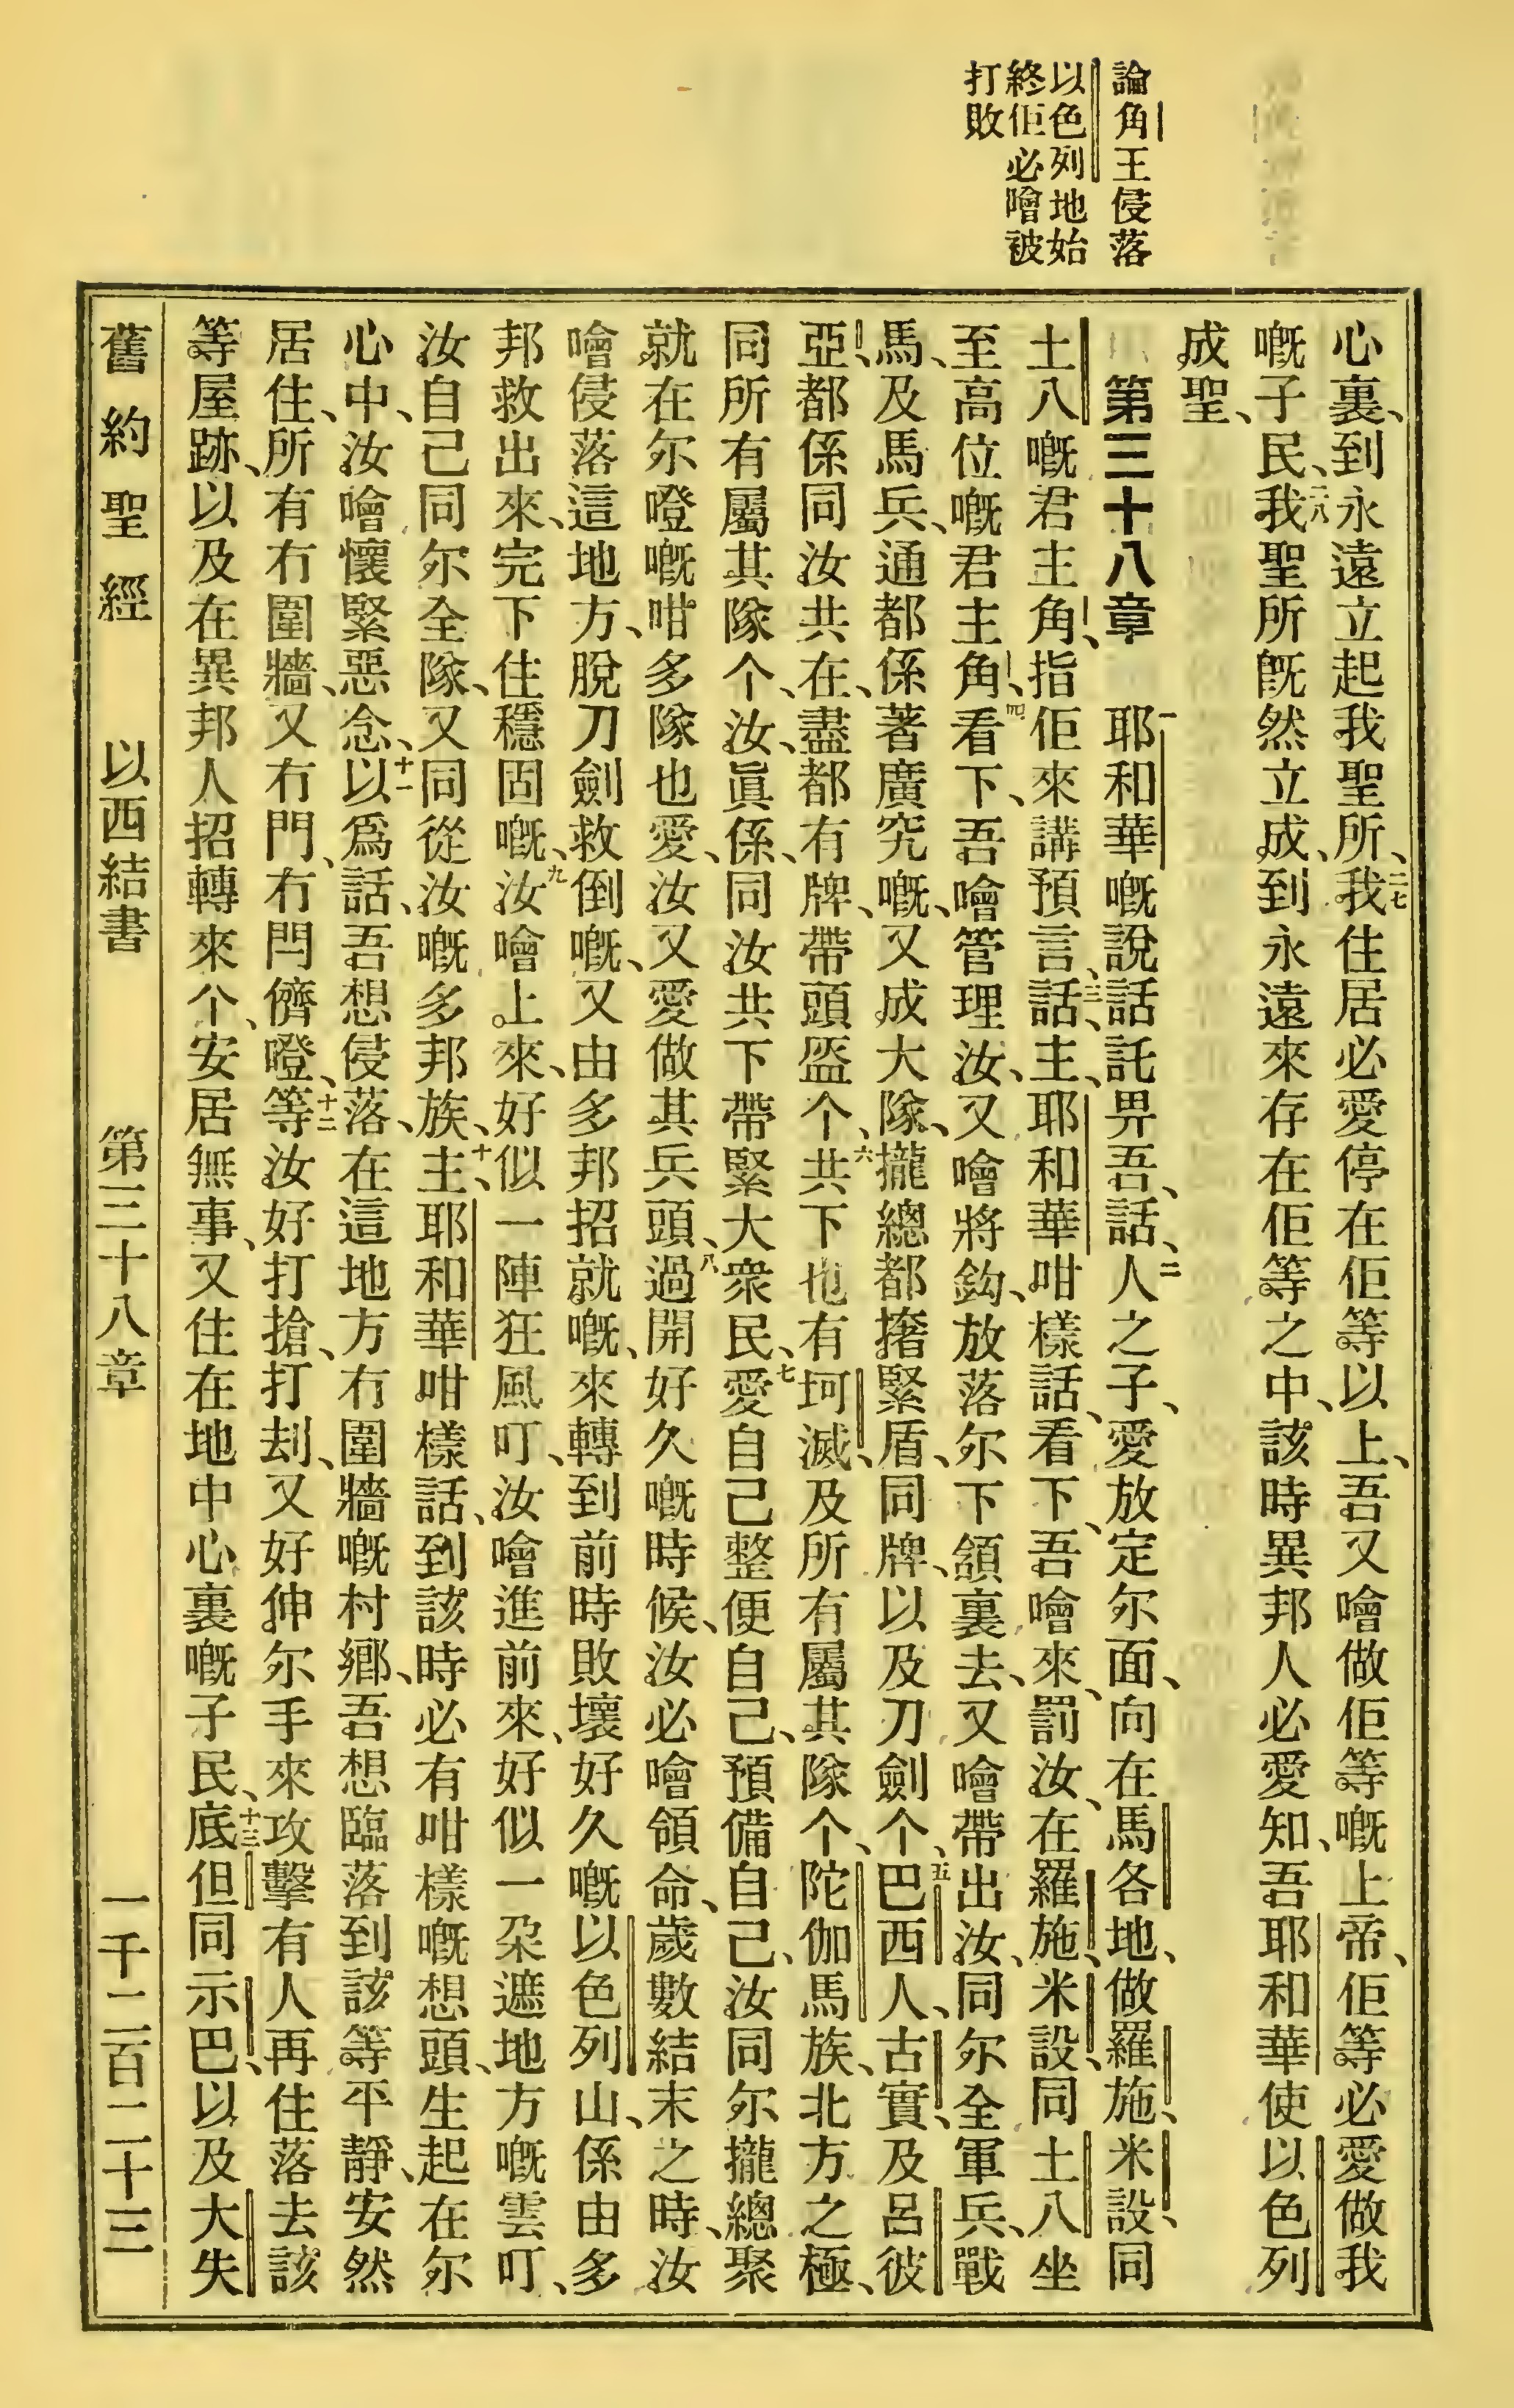 論角王侵落
以色列地始
終佢必噲被
打敗
心裏、到永遠立起我聖所、二七我住居必愛停在佢等以上、吾又噲做佢等嘅上帝、佢等必愛做我
嘅子民、二八我聖所既然立成、到永遠來存在佢等之中、該時異邦人必愛知、吾耶和華使以色列
成聖、
第三十八章 一耶和華嘅說話託畀吾、話、二人之子、愛放定尔面、向在馬各地、做羅施、米設、同
土八嘅君主角、指佢來講預言、三話、主、耶和華咁樣話、看下、吾噲來、罰汝、在羅施、米設、同土八坐
至高位嘅君主角、四看下、吾噲管理汝、又噲將鈎、放落尔下頷裏去、又噲帶出汝、同尔全軍兵、戰
馬、及馬兵、通都係著廣究嘅、又成大隊、攏總都撦緊盾、同牌、以及刀劍个、五巴西人、古實、及呂彼
亞、都係同汝共在、盡都有牌、帶頭盔个、六共下也有坷滅、及所有屬其隊个、陀伽馬族、北方之極、
同所有屬其隊个、汝、眞係、同汝共下帶緊大衆民、七愛自己整便自己、預備自己、汝同尔攏總聚
就在尔噔嘅咁多隊也愛、汝又愛做其兵頭、八過開好久嘅時候、汝必噲領命、歲數結末之時、汝
噲侵落這地方、脫刀劍救倒嘅、又由多邦招就嘅、來轉到前時敗壞好久嘅以色列山、係由多
邦救出來、完下住穩固嘅、九汝噲上來、好似一陣狂風叮、汝噲進前來、好似一朶遮地方嘅雲叮、
汝自己同尔全隊、又同從汝嘅多邦族、十主、耶和華咁樣話、到該時必有咁樣嘅想頭、生起在尔
心中、汝噲懷緊惡念、十一以爲話、吾想侵落、在這地方冇圍牆嘅村鄕、吾想臨落到該等平靜、安然
居住、所有冇圍牆、又冇門、冇閂儕噔、十二等汝好打搶、打刦、又好伸尔手來攻擊有人再住落去該
等屋跡、以及在異邦人招轉來个、安居無事、又住在地中心裏嘅子民、十三底但同示巴、以及大失
舊約聖經 以西結書 第三十八章 一千二百二十三